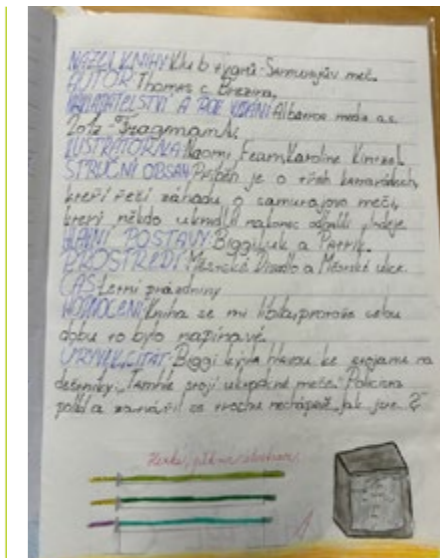 NÁZEV KNIHY: Klub tygrů - Samurajův meč.
AUTOR: Thomas c. Brezina,
NAKLADATELSTVÍ A ROK VYDÁNÍ: Albatros media a.s.
2012 - Fragment,
ILUSTRÁTORKA: Naomi Fearn Karoline Kinzel
STRUČNÝ OBSAH: Příběh je o třech kamarádech,
kteří řeší záhadu o samurajovo meči,
který někdo ukradl nakonec odhalili zloděje
HLAVNÍ POSTAVY: Biggi, Luk a Patrik.
PROSTŘEDÍ: Městské Divadlo a Městské ulice.
ČAS: Letní prázdniny
HODNOCENÍ: Kniha se mi líbila, protože celou
dobu to bylo napínavé.
ÚRYVEK, CITÁT: Biggi kývla hlavou ke stojanu na
deštníky. Tamhle stojí ukradené meče. Policista
a se trochu nechápavě jak jste
Hezké, pěkná